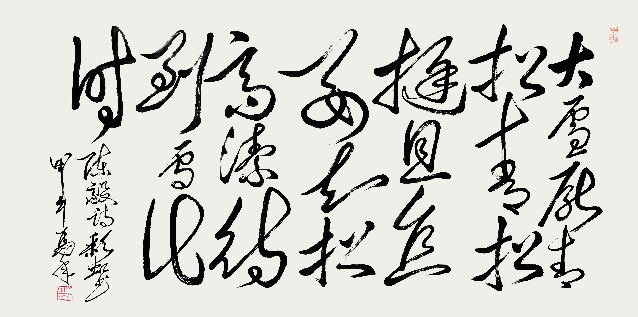 大雪壓青
松青松
挺且直
要知松
高潔待
到雪化
時
陳毅詩
甲午